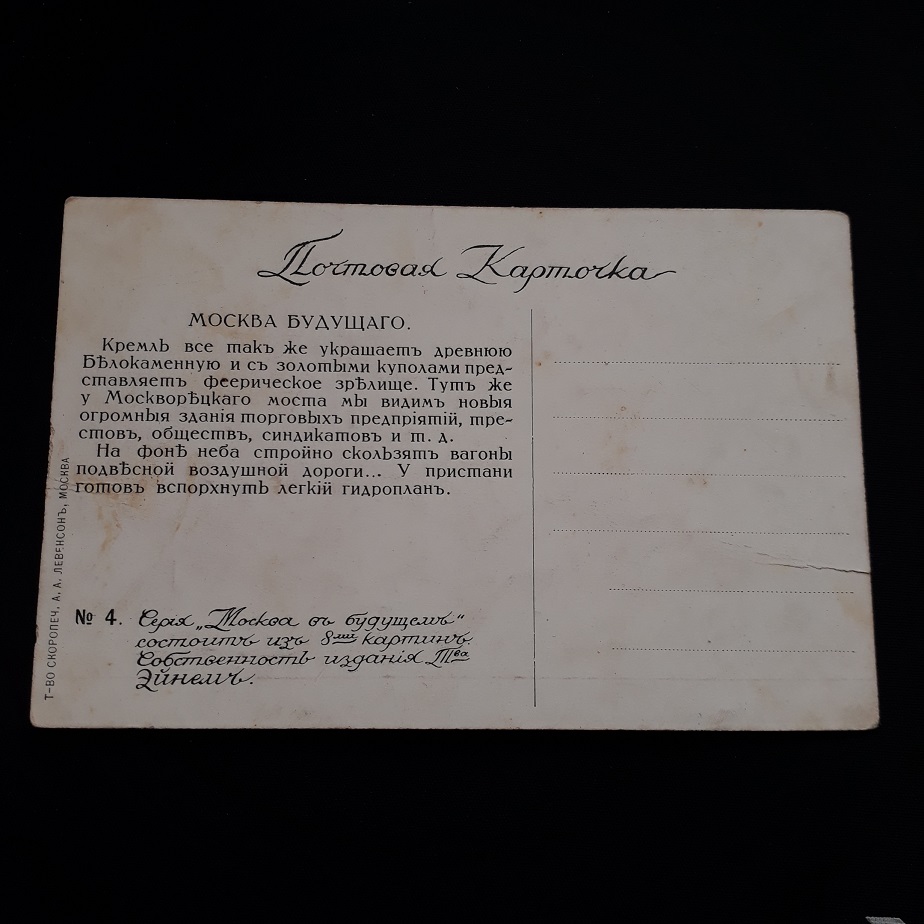 Почтовая Карточка
МОСКВА БУДУЩАГО.
Кремль все такъ же украшаетъ древнюю
Бѣлокаменную и съ золотыми куполами пред-
ставляетъ феерическое зрѣлище. Тутъ же
у Москворѣцкаго моста мы видимъ новыя
огромныя зданія торговыхъ предпріятій, тре-
стовъ, обществъ, синдикатовъ и т. д.
На фонѣ неба стройно скользятъ вагоны
подвѣсной воздушной дороги... У пристани
готовъ вспорхнуть легкій гидропланъ.
№ 4. Серія „Москва въ будущемъ“
состоитъ изъ 8ми картинъ.
Собственность изданія Тва
Эйнемъ.
Т-ВО СКОРОПЕЧ. А. А. ЛЕВЕНСОНЪ, МОСКВА